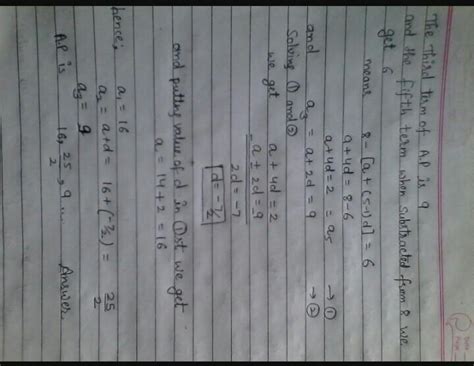 The Third term of AP is 9
and the fifth term when substracted from 8 we
get 6
means 8 - [a + (5-1)d] = 6
a+4d = 8-6
a+4d = 2 = a5 → ①
and a3 = a+2d = 9 → ②
Solving ① and ②
we get a + 4d = 2
- a + 2d = 9
2d = -7
d = -7/2
and putting value of d in ①st we get
a = 14+2 = 16
hence;
a1 = 16
a2 = a+d = 16+(-7/2) = 25/2
a3 = 9
AP is 16, 25/2, 9 ... Answer.